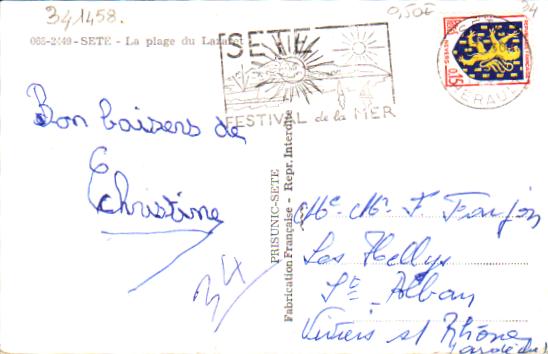 341458.
0,50€
34
068-2449 - SETE - La plage du Lazaret
SETE
FESTIVAL de la MER
0,15
HERAULT
Bon baisers de
Christine
34
PRISUNIC-SETE
Fabrication Française - Repr. Interdite
St Alban
Viviers s/ Rhône
(ardèche)